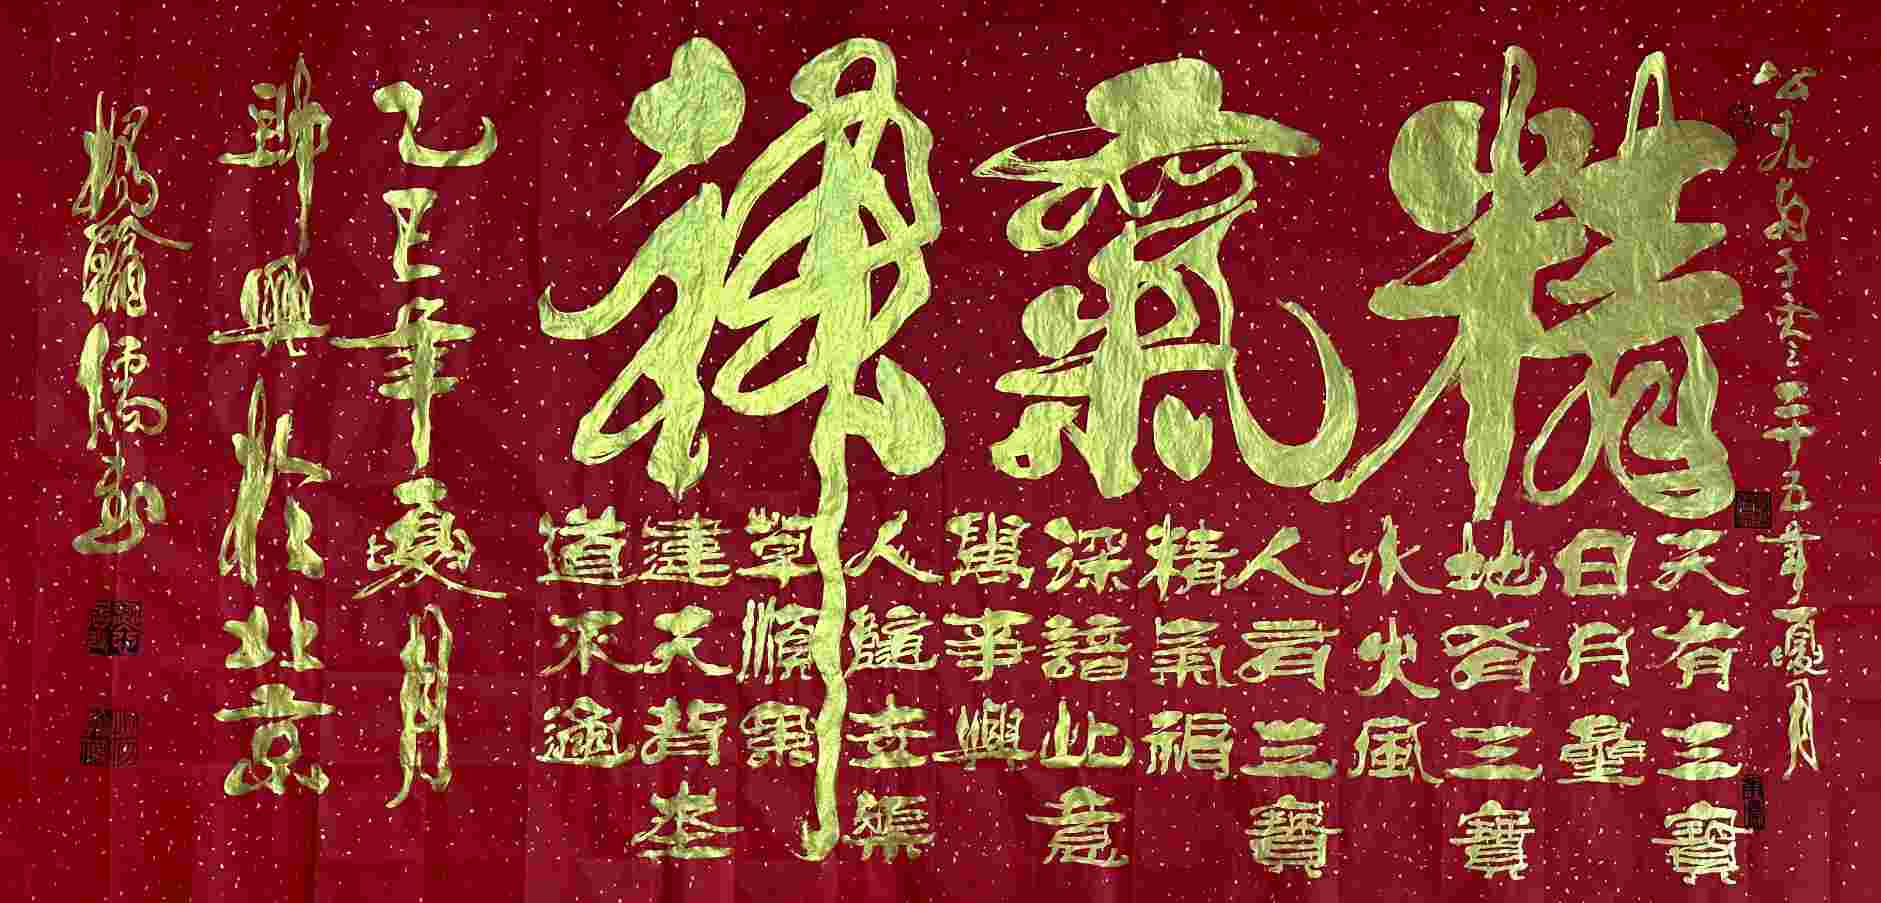 公元兩千零二十五年夏月
精氣神
天有三寶
日月星
地有三寶
水火風
人有三寶
精氣神
深諳此意
萬事興
人隨
順
天背
道不
乙巳年夏月
即興於北京
楊儒書